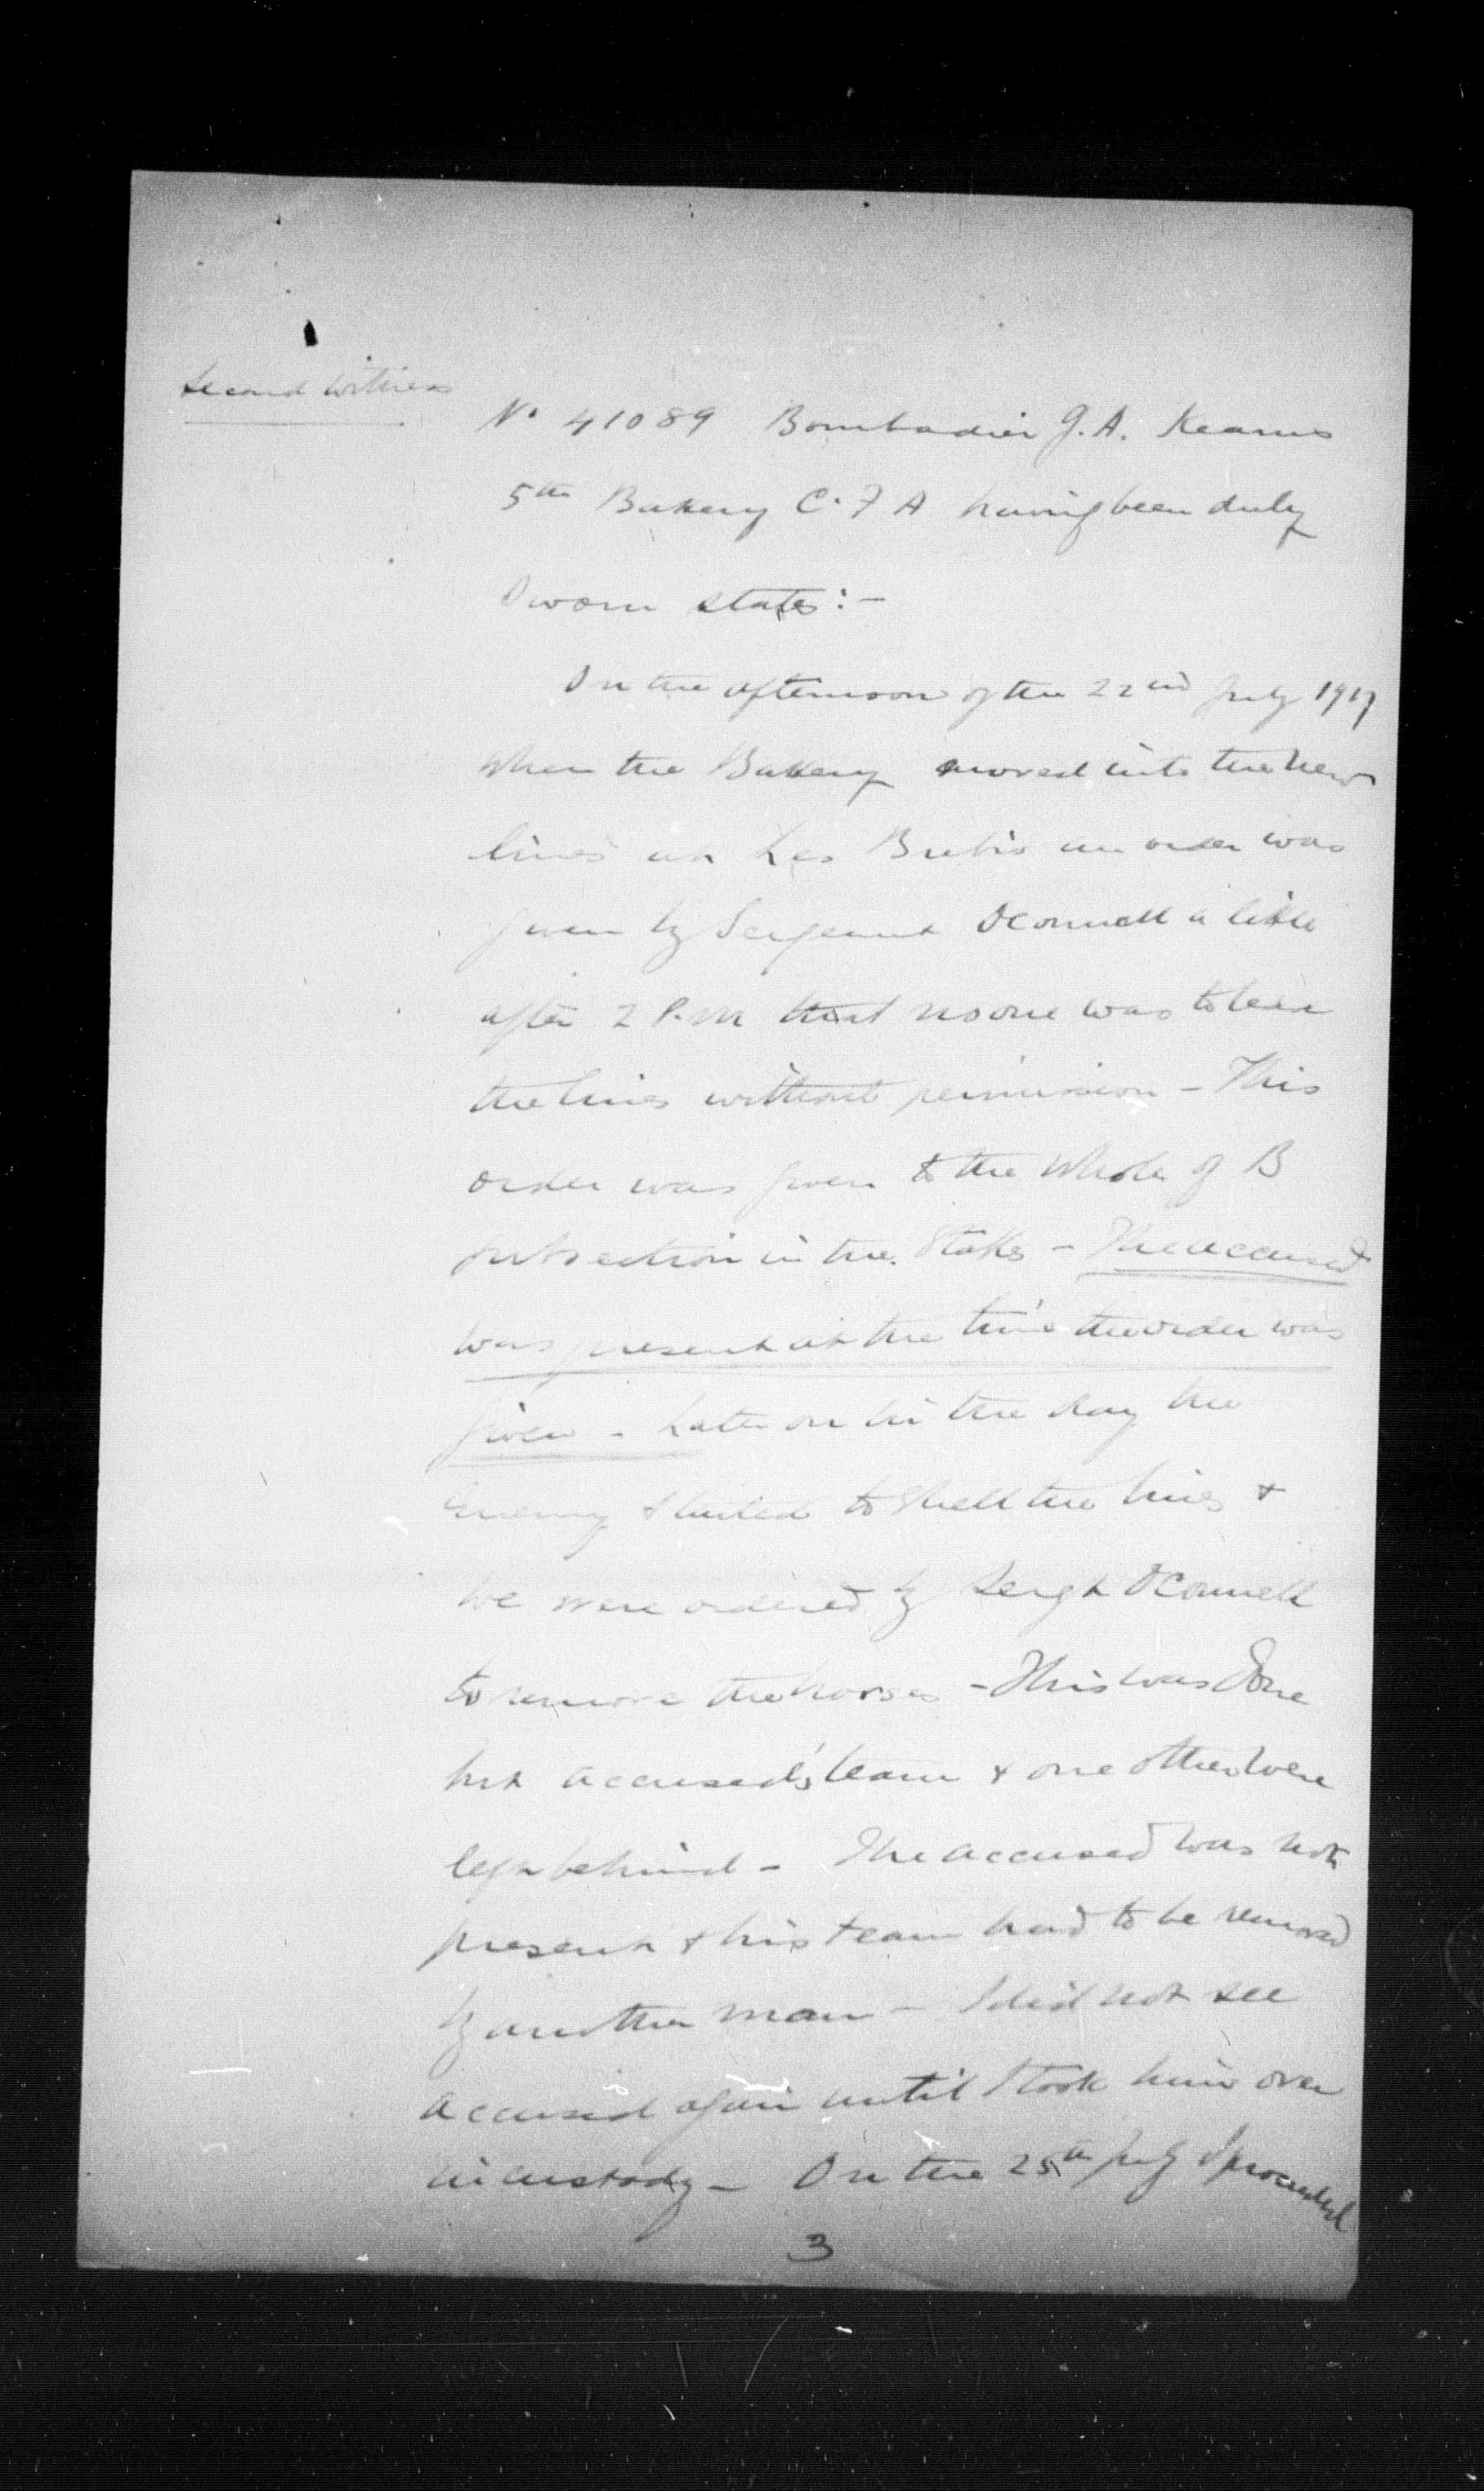 Second Witness
No 41089 Bombadier G.A. Kearns
5th Battery C.F A having been duly
Sworn states:-
On the afternoon of the 22nd July 1917
When the Battery moved into the new
lines at Les Brebis an order was
given by Sergeant OConnell a little
after 2 P.M that no one was to leave
the lines without permission - This
order was given to the whole of B
subsection in the Stables - The accused
was present at the time the order was
given - Later on in the day the
Enemy started to shell the lines &
we were ordered by Sergt OConnell
to remove the horses - This was Done
but accused's team & one other were
left behind - The accused was not
present & his team had to be removed
by another man - I did not see
accused again until I took him over
in custody - On the 25th July I proceeded
3